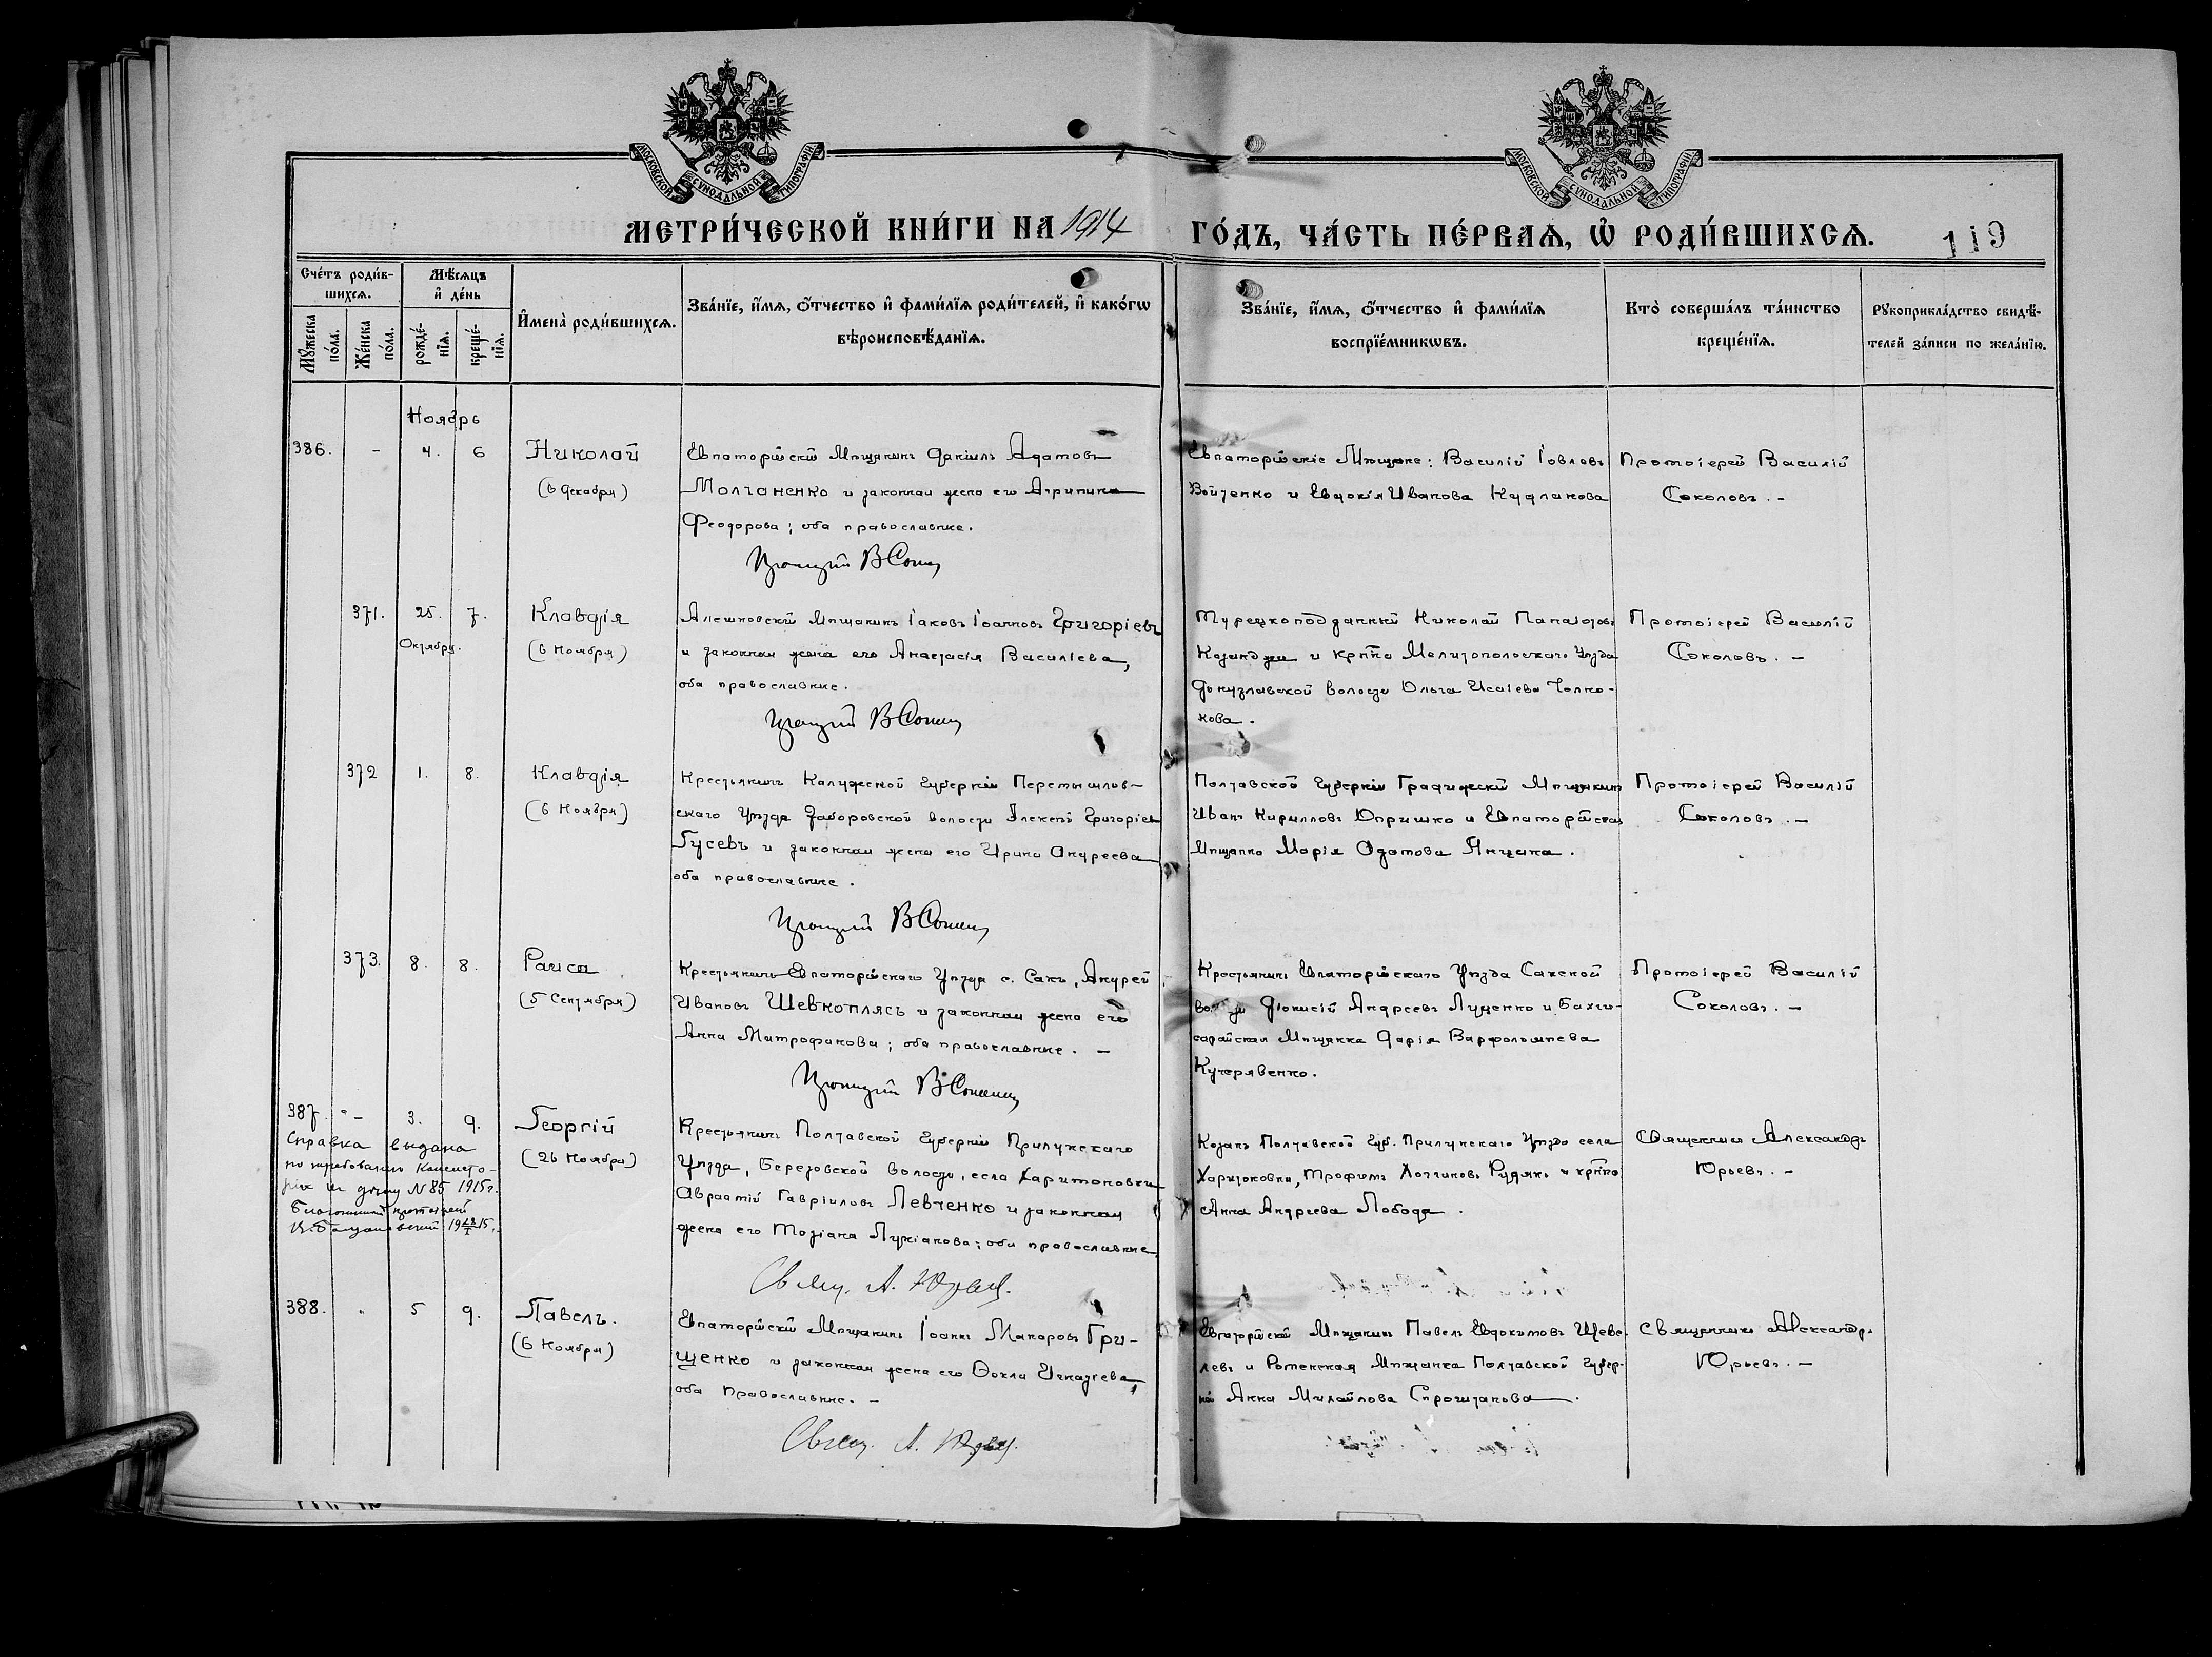 МОСКОВСКОЙ СѴНОДАЛЬНОЙ ТИПОГРАФІИ
МОСКОВСКОЙ СѴНОДАЛЬНОЙ ТИПОГРАФІИ
МЕТРИ́ЧЕСКОЙ КНИ́ГИ НА 1914 ГО́ДЪ, ЧА́СТЬ ПЕ́РВАѦ, Ѡ҆ РОДИ́ВШИХСѦ.
119
Сче́тъ роди́в-
шихсѧ.
Мꙋ́жеска
по́ла.
Же́нска
по́ла.
Мѣ́сѧцъ
и҆ де́нь
рожде́-
нїѧ.
креще́-
нїѧ.
И҆мена̀ роди́вшихсѧ.
Зва́нїе, и҆́мѧ, ѻ҆́тчество и҆ фами́лїѧ роди́телей, и҆ како́гѡ
вѣроисповѣ́данїѧ.
Зва́нїе, и҆́мѧ, ѻ҆́тчество и҆ фами́лїѧ
воспрїе́мникѡвъ.
Кто̀ соверша́лъ та́инство
креще́нїѧ.
Рꙋкоприкла́дство свидѣ́-
телей за́писи по жела́нїю.
Ноябрь
386. - 4. 6
Николай
(6 Декабря)
Евпаторійскій Мѣщанинъ Даніилъ Адамовъ
Молчаненко и законная жена его Агрипина
Феодорова; оба православные.
Евпаторійскіе Мѣщане: Василій Іовловъ
Войтенко и Евдокія Иванова Кудланова
Протоіерей Василій
Соколовъ. -
371. 25. 7.
Октября.
Клавдія
(6 Ноября)
Алешковскій Мѣщанинъ Іаковъ Іоанновъ Григорьевъ
и законная жена его Анастасія Василіева,
оба православные.
Турецкоподданный Николай Панаіотовъ
Казанджи и кр-нка Мелитопольскаго Уѣзда
волости Ольга Исаіева Челно-
кова.
Протоіерей Василій
Соколовъ. -
372 1. 8.
Клавдія
(6 Ноября)
Крестьянинъ Калужской Губерніи Перемышлев-
скаго Уѣзда Заборовской волости Алексѣй Григоріевъ
Гусевъ и законная жена его Ирина Андреева
оба православные.
Полтавской Губерніи Градижскій Мѣщанинъ
Иванъ Кирилловъ Опришко и Евпаторійская
Мѣщанка Марія Адамова Янцена.
Протоіерей Василій
Соколовъ. -
373. 8. 8.
Раиса
(5 Сентября)
Крестьянинъ Евпаторійскаго Уѣзда с. Сакъ, Андрей
Ивановъ Шевкоплясъ и законная жена его
Анна Митрофанова; оба православные. -
Крестьянинъ Евпаторійскаго Уѣзда Сакской
Діонисій Андреевъ Луценко и Бахчи-
сарайская Мѣщанка Дарія Варфоломѣева
Кучерявенко.
Протоіерей Василій
Соколовъ. -
387. - 3. 9.
Справка выдана
по требованію Консисто-
ріи къ дѣлу № 85 1915 г.
Благочинный протоіерей
Георгій
(26 Ноября)
Крестьянинъ Полтавской Губерніи Прилукскаго
Уѣзда, Березовской волости, села Харитоновки
Авраамій Гавріиловъ Левченко и законная
жена его Татіана Лукіанова; оба православные.
Свящ. А. Юрьевъ.
Козакъ Полтавской Губ. Прилукскаго Уѣзда села
Харитоновки, Трофимъ Логгиновъ Рудякъ и кр-нка
Анна Андреева Лобода.
Священникъ Александръ
Юрьевъ. -
388. " 5 9.
Павелъ.
(6 Ноября)
Евпаторійскій Мѣщанинъ Іоаннъ Макаровъ Гри-
щенко и законная жена его Ѳекла Игнатіева,
оба Православные. -
Свящ. А. Юрьевъ.
Евпаторійскій Мѣщанинъ Павелъ Евдокимовъ Щеве-
левъ и Роменская Мѣщанка Полтавской Губер-
ніи Анна Михайлова
Священникъ Александръ
Юрьевъ. -